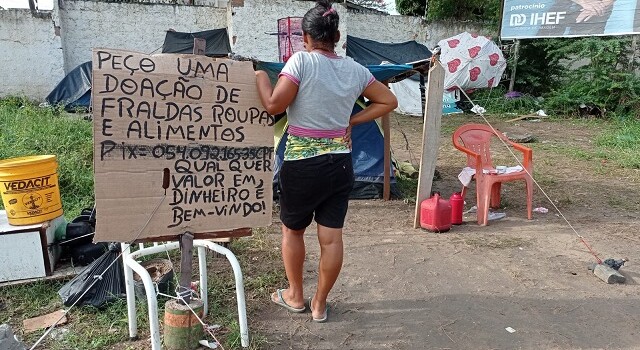 PEÇO UMA
DOAÇÃO DE
FRALDAS ROUPA
E ALIMENTOS
QUALQUER
VALOR EM
DINHEIRO É
BEM-VINDO!
VEDACIT
patrocínio
IHEF